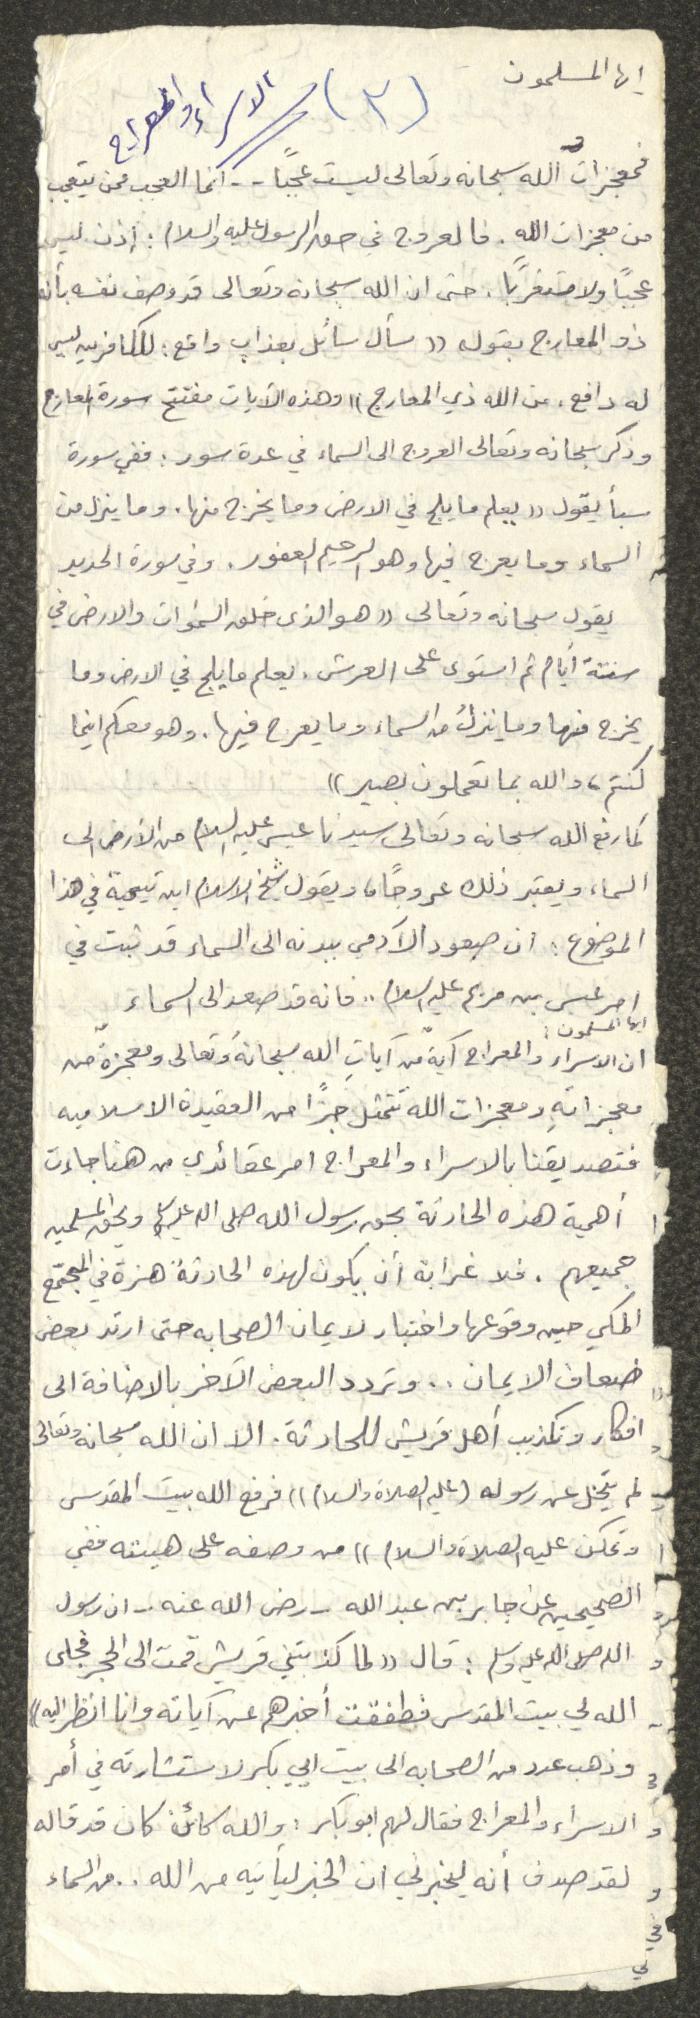 ايها المسلمون
(٢) الاسراء والمعراج
فمعجزات الله سبحانه وتعالى ليست عجبًا -- انما العجب ممن يتعجب
من معجزات الله . فالعروج في حق الرسول عليه والسلام : إذن ليس
عجبًا ولا مستغربًا . حتى ان الله سبحانه وتعالى قد وصف نفسه بأنه
ذو المعارج بقوله (( سأل سائل بعذاب واقع : للكافرين ليس
له دافع . من الله ذي المعارج )) وهذه الآيات مفتتح سورة المعارج
وذكر سبحانه وتعالى العروج الى السماء في عدة سور : ففي سورة
سبأ يقول (( يعلم ما يلج في الارض وما يخرج منها . وما ينزل من
السماء وما يعرج فيها وهو الرحيم الغفور . وفي سورة الحديد
يقول سبحانه وتعالى (( هو الذي خلق السموات والارض في
ستة أيام ثم استوى على العرش . يعلم ما يلج في الارض وما
يخرج منها وما ينزل من السماء وما يعرج فيها . وهو معكم اينما
كنتم ، والله بما تعملون بصير ))
كما رفع الله سبحانه وتعالى سيدنا عيسى عليه السلام من الأرض الى
السماء ويعتبر ذلك عروجًا ، ويقول شيخ الاسلام ابن تيمية في هذا
الموضوع : ان صعود الآدمي ببدنه الى السماء قد ثبت في
امر عيسى بن مريم عليه السلام .. فانه قد صعد الى السماء
ايها المسلمون :
ان الاسراء والمعراج آيةٌ من آياتِ الله سبحانهُ وتعالى ومعجزةٌ من
معجزاتهِ ومعجزات الله تتمثل جزًا من العقيدة الاسلاميه
فتصديقنا بالاسراء والمعراج امر عقائدي من هنا جاءت
أهمية هذه الحادثة بحق رسول الله صلى الله عليه وسلم وبحق المسلمين
جميعهم . فلا غرابة أن يكون لهذه الحادثة هزة في المجتمع
المكي حين وقوعها واختبار لايمان الصحابه حتى ارتد بعض
ضعاف الايمان .. وتردد البعض الآخر بالاضافة الى
افكار وتكذيب أهل قريش للحادثة . الا ان الله سبحانه وتعالى
لم يتخل عن رسوله (عليه الصلاة والسلام )) فرفع الله بيت المقدس
وتمكن عليه الصلاة والسلام )) من وصفه على هيئته ففي
الصحيحين عن جابر بن عبد الله - رضي الله عنه - ان رسول
الله صلى الله عليه وسلم : قال (( لما كذبتني قريش قمت الى الحجر فجلى
الله لي بيت المقدس فطفقت أخبرهم عن آياته وانا انظر اليه ))
وذهب عدد من الصحابه الى بيت ابي بكر لاستشارته في أمر
الاسراء والمعراج فقال لهم ابو بكر : والله كان قد قاله
لقد صدق أنه ليخبرني ان الخبر ليأتيه من الله .. من السماء